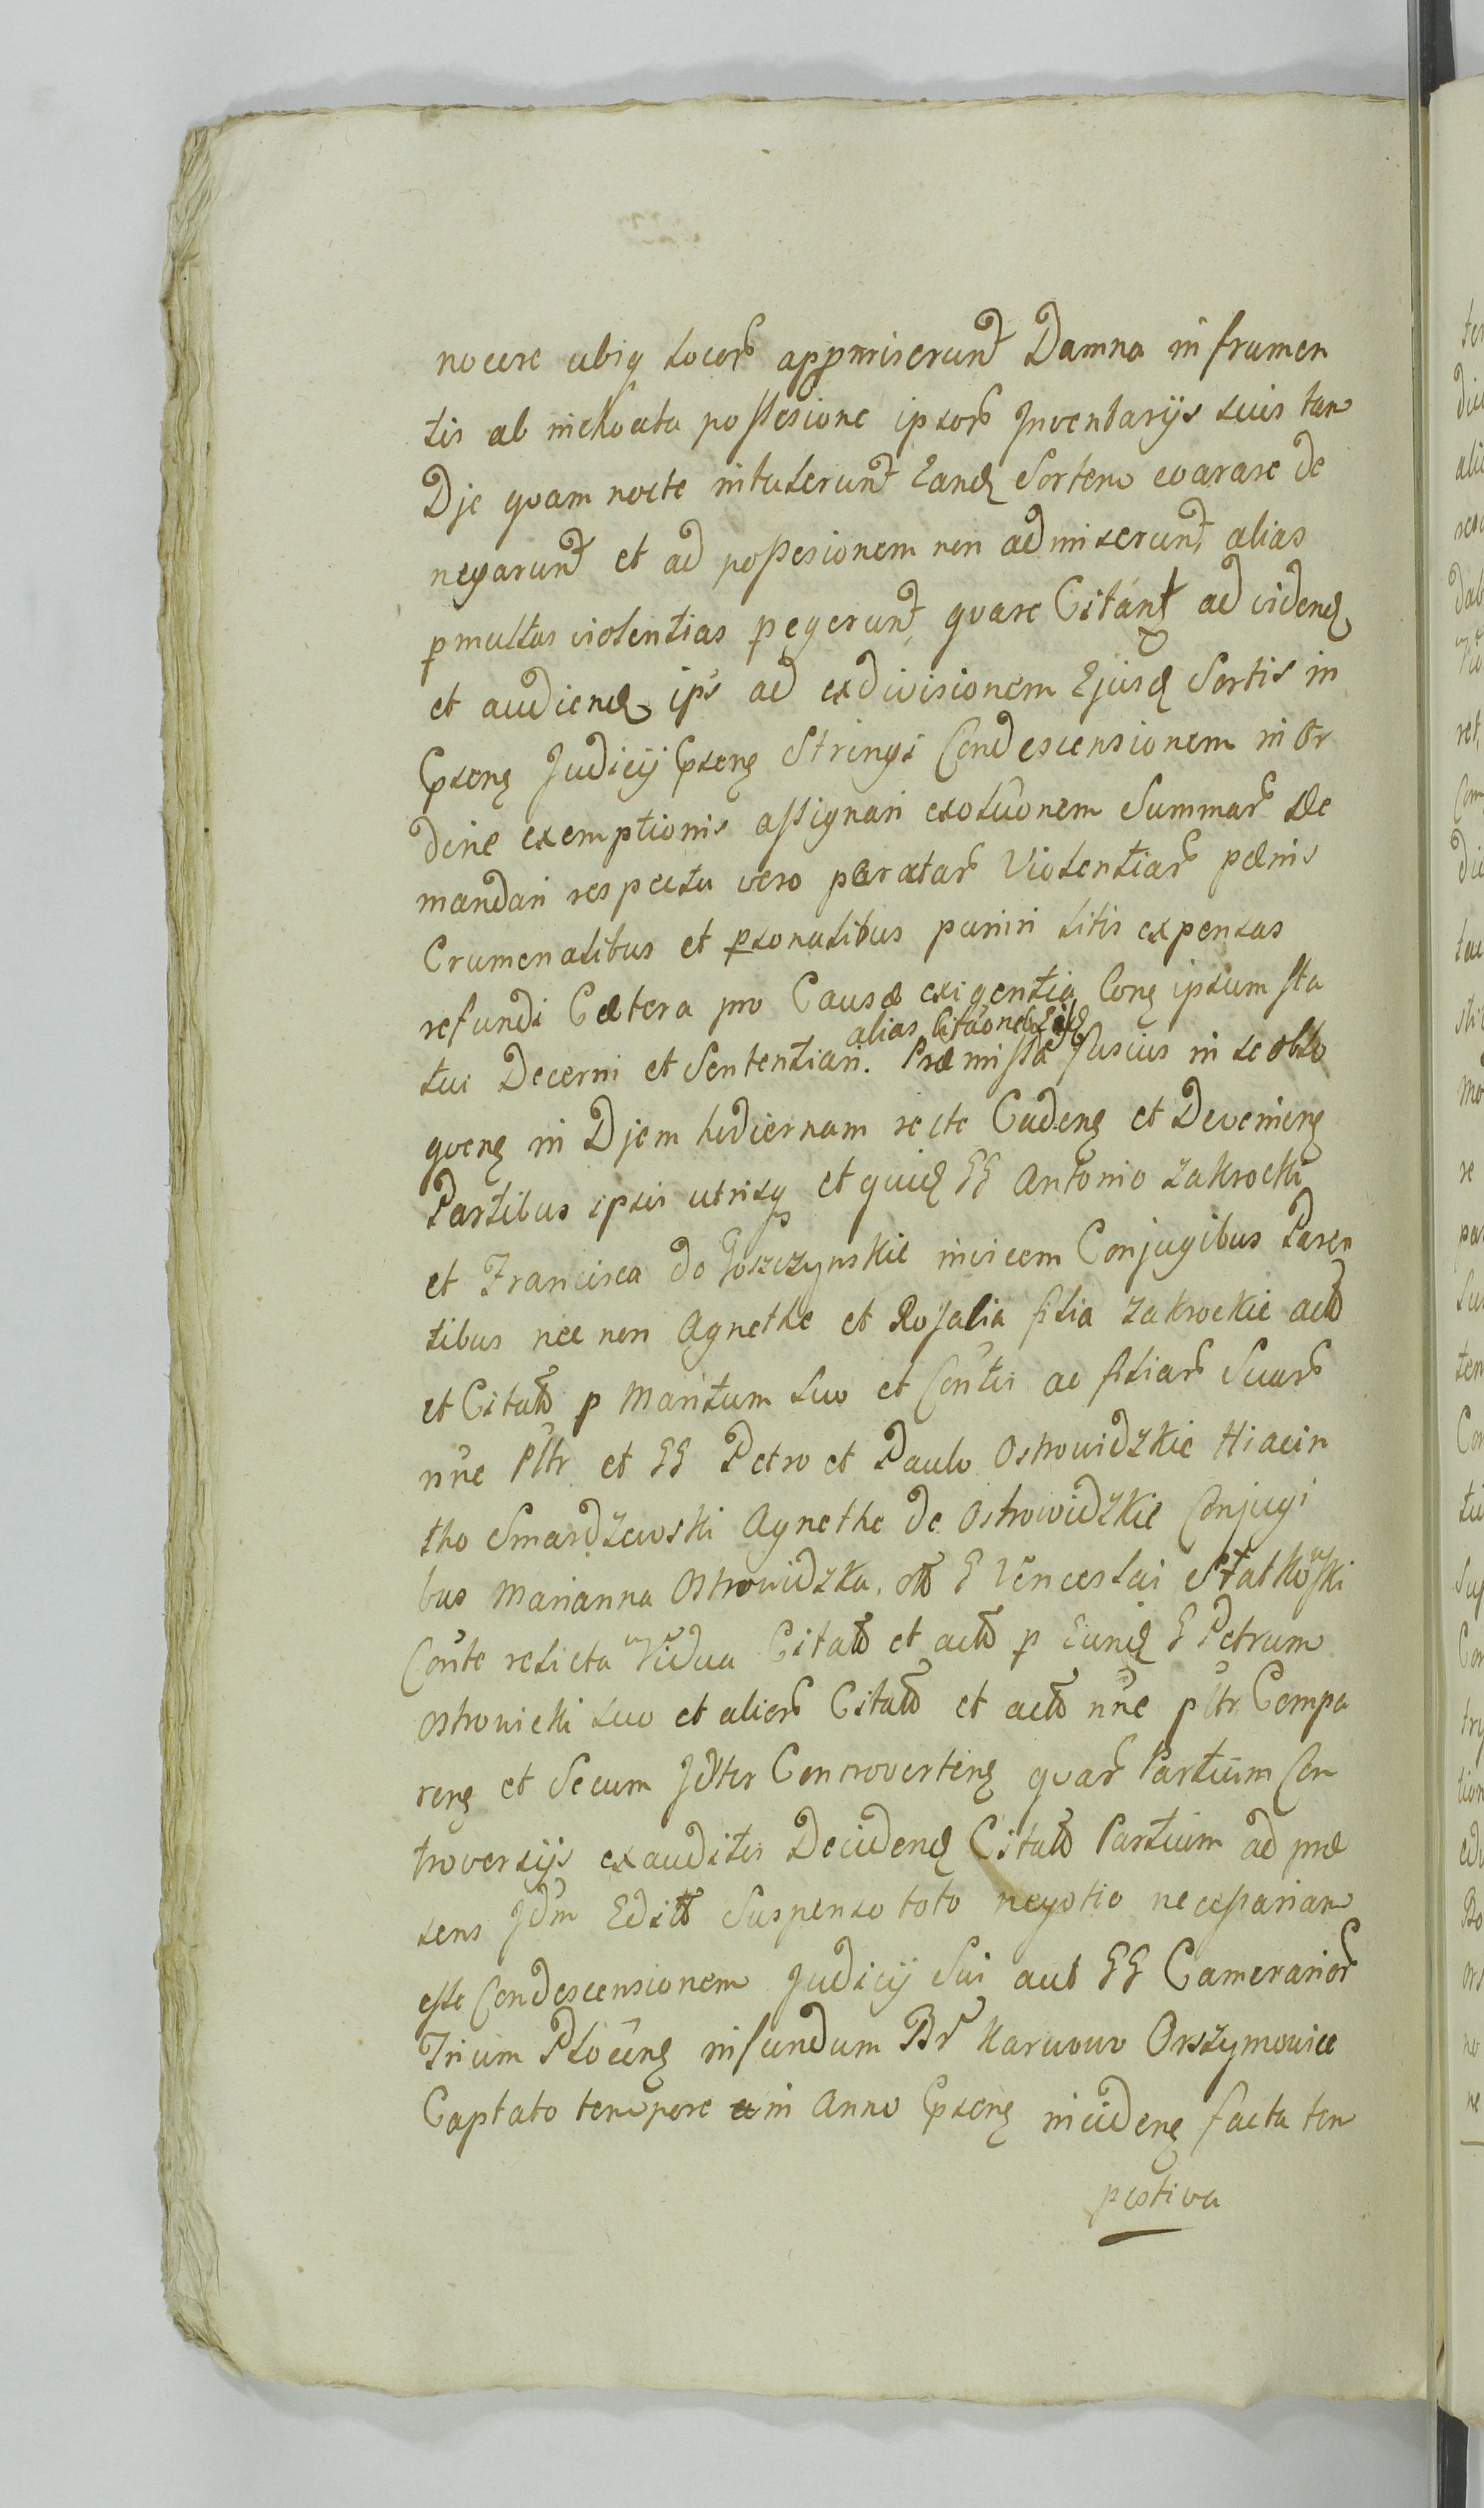 nocere ubiq locor appromiserunt Damna in frumen
tis ab inchoata possesione ipsor Inventarijs suis tam
Dje quam nocte intulerunt Eand Sortem exarare de
negarunt et ad possesionem non admiserunt, alias
pmultas violentias pegerunt, quare Citant ad vidend
et audiend ips ad exdivisionem Ejusd Sortis in
Judicij Stringi Condescensionem in Or
dine exemptionis assignari exolūonem Summar De
mandari respectu vero patratar Violentiar pænis
Crumenalibus et psonalibus puniri litis expensas
refundi Cætera pro Causæ exigentia Cong ipsum sta
alias Citāone
tui Decerni et Sententiari. Præmissa fusius in se oblo
quens in Djem hodiernam recte Cadens et Deveniens
Partibus ipsis utrisq et quid GG Antonio Zakrocki
et Francisca do Goszczynskie invicem Conjugibus Paren
tibus nec non Agnethe et Rosalia filia Zakrockie acto
et Citato p Maritum suo et Contis ac filiar Suar
nne Pltr et GG Petro et Paulo Ostrowidzkie Hiacin
tho Smardzewski Agnethe de Ostrowidzkie Conjugi
bus Marianna Ostrowidzka, olto G Venceslai Statkowski
Conte relicta Vidua Citato et acto p Eund G Petrum
Ostrowicki suo et alior Citato et acto nne pltr Compa
rens et Secum Jdlter Controvertens quar Partium Con
troversijs exauditis Decidend Citato Partium ad præ
sens Jdm Edito Suspenso toto negotio necessariam
esse Condescensionem Judicij Sui aut GG Camerarior
Trium Plocens in fundum Br Karwowo Orszymowice
Captato tempore in Anno incidens facta tem
pestiva